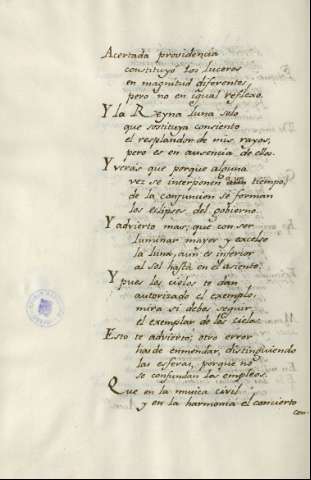 Acertada providencia
constituyò los luceros
en magnitud diferentes,
pero no en igual reflexo.
Y la Reyna luna solo
que sostituya consiento
el resplandor de mis rayos,
pero es en ausencia de ellos.
Y verás que porque alguna
vez se interponen tiempo,
de la conjuncion se forman
los eclipses del gobierno.
Y advierto mas, que con ser
luminar mayor y excelso
la luna, aun es inferior
al sol hasta en el asiento.
Y pues los cielos te dan
autorizado el exemplo,
mira si debes seguir
el exemplar de los cielos.
Esto te advierto; otro error
has de enmendar, distinguiendo
las esferas, porque no
se confundan los empleos.
Que en la musica civil
y en la harmonia el concierto
con-